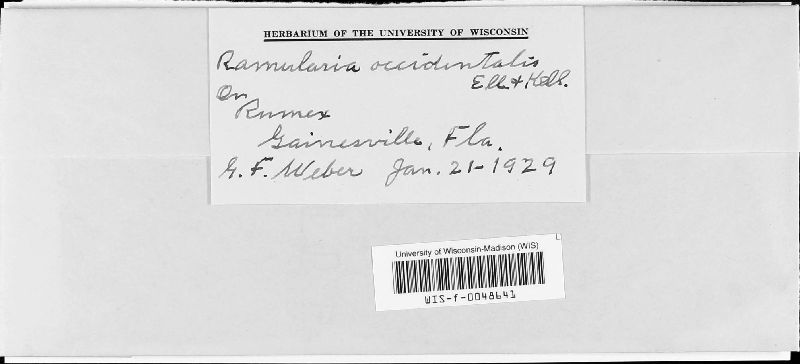 HERBARIUM OF THE UNIVERSITY OF WISCONSIN
Ramularia occidentalis
Ell & Kell.
On
Rumex
Gainesville, Fla.
G. F. Weber Jan. 21-1929
University of Wisconsin-Madison (WIS)
WIS-f-0048641